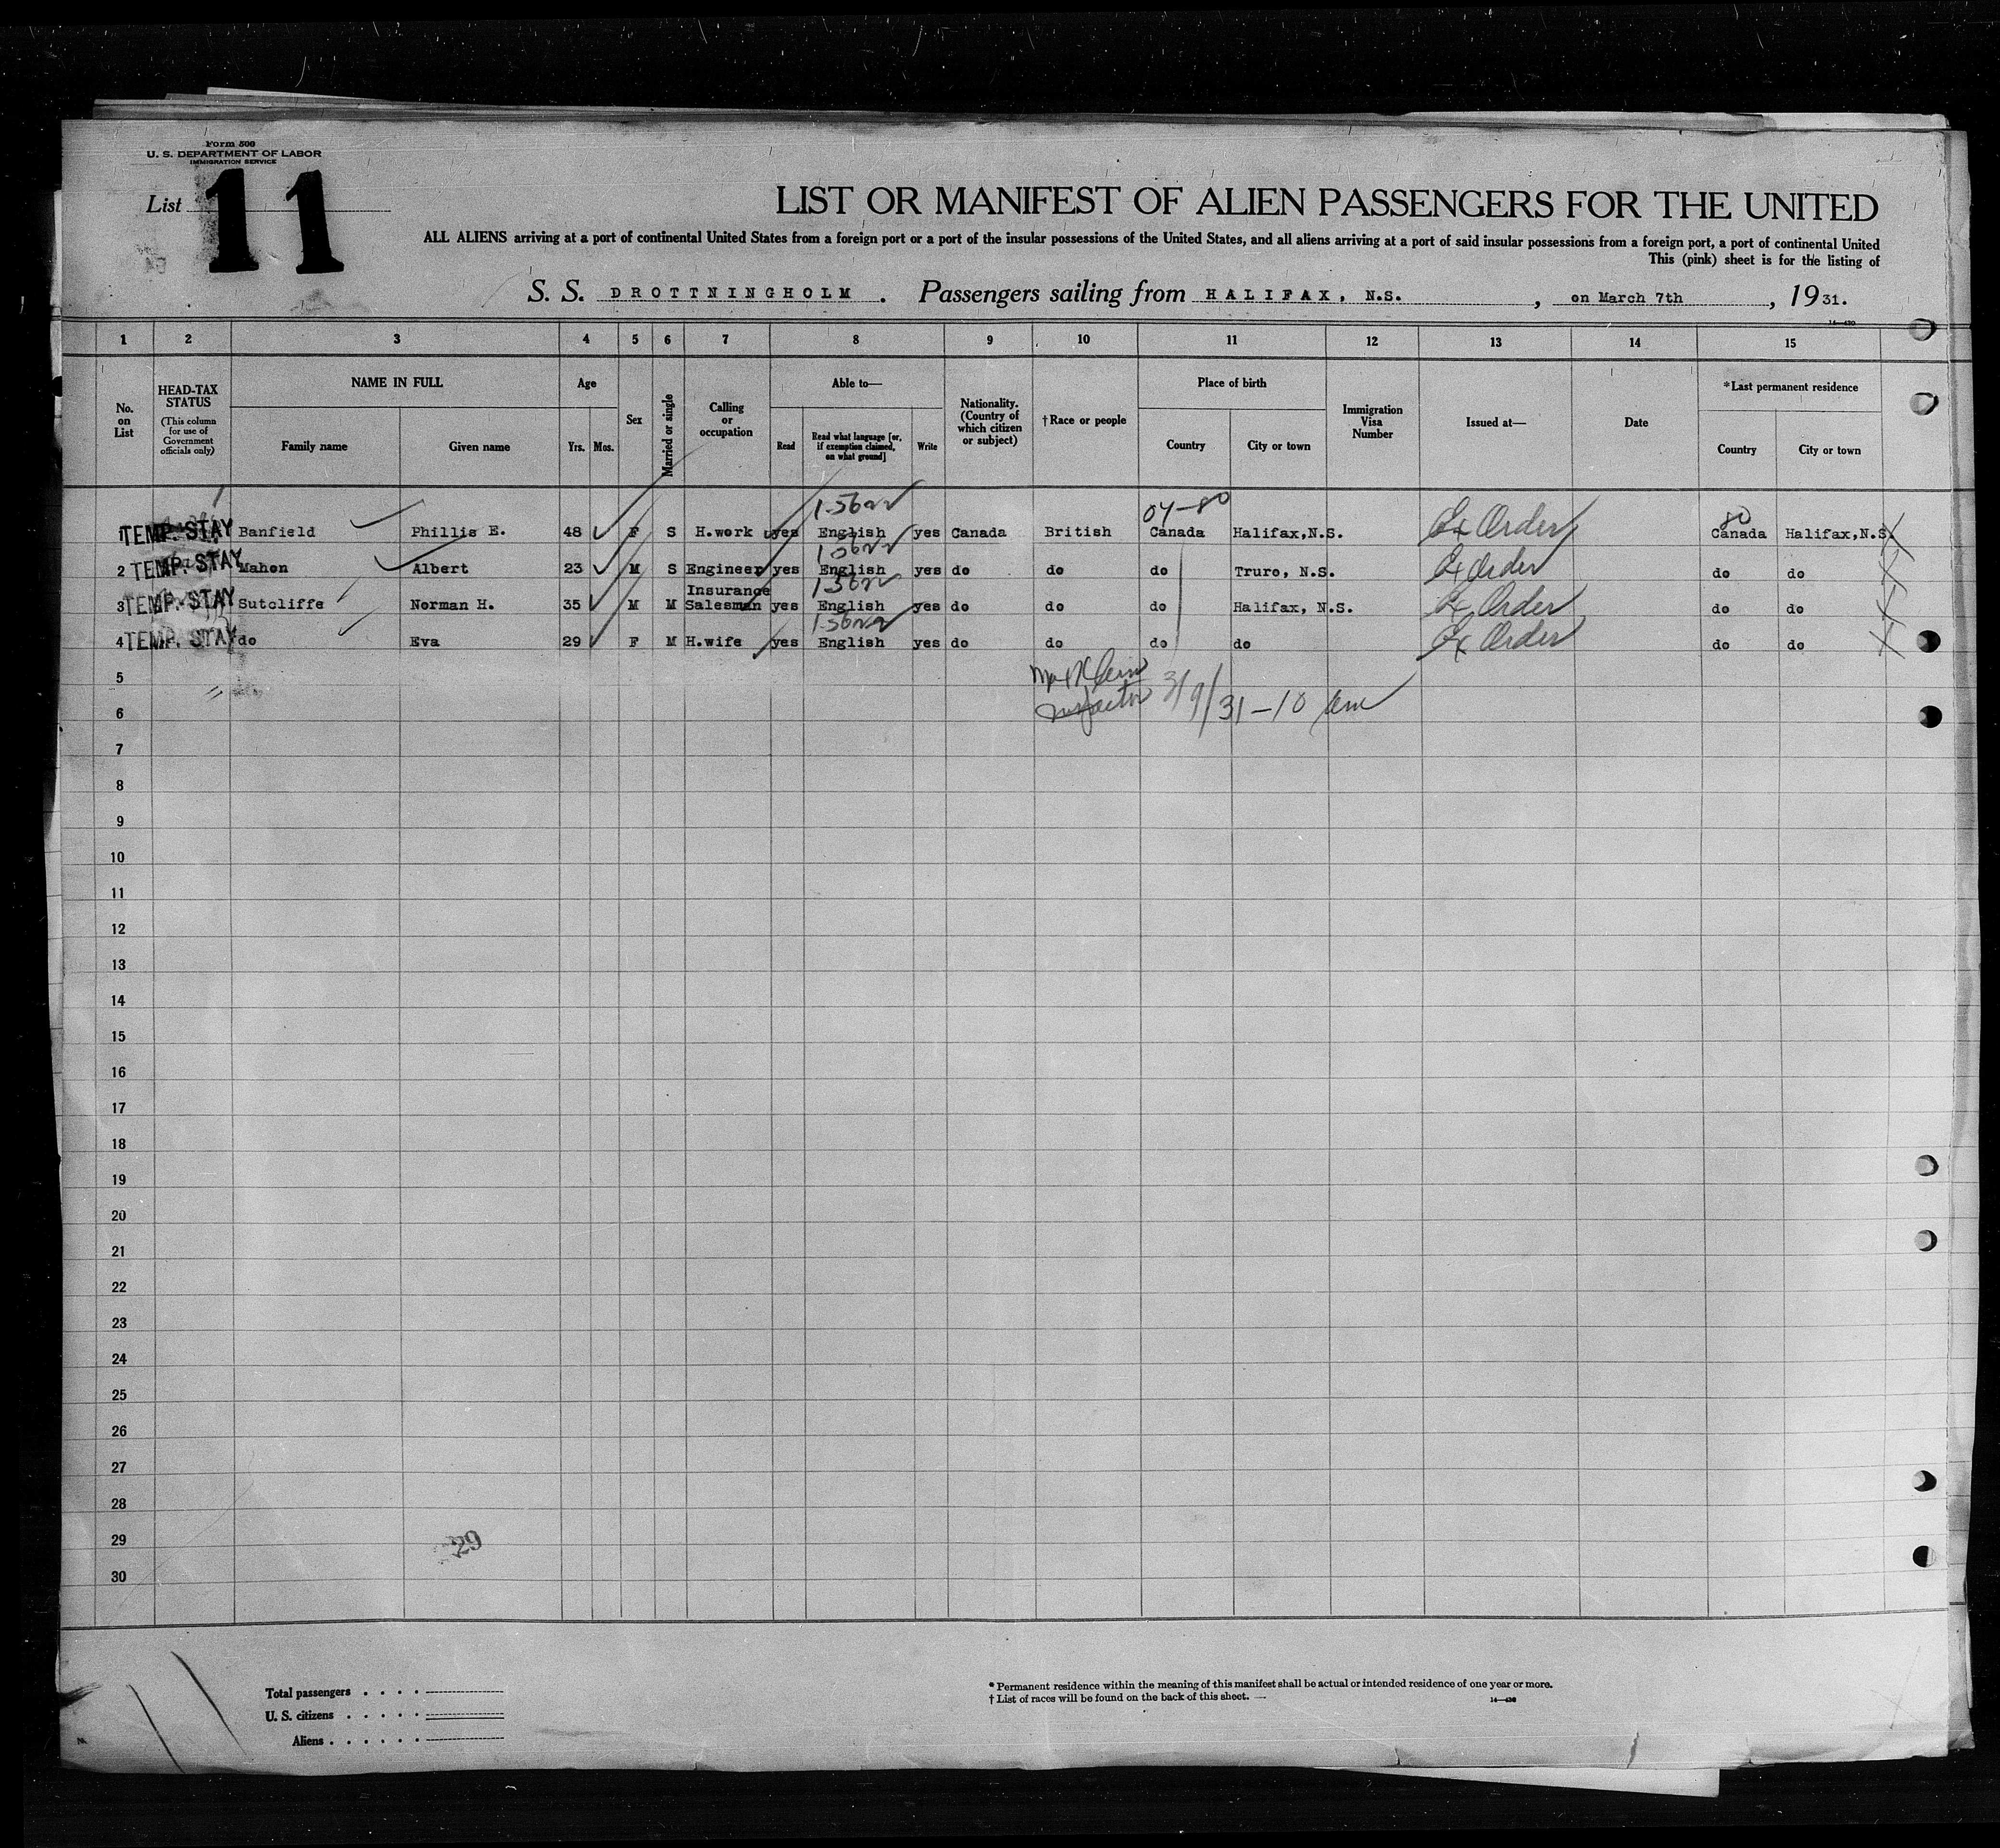 Form 500
U. S. DEPARTMENT OF LABOR
IMMIGRATION SERVICE
List 11
LIST OR MANIFEST OF ALIEN PASSENGERS FOR THE UNITED
ALL ALIENS arriving at a port of continental United States from a foreign port or a port of the insular possessions of the United States, and all aliens arriving at a port of said insular possessions from a foreign port, a port of continental United
This (pink) sheet is for the listing of
S. S. DROTTNINGHOLM . Passengers sailing from HALIFAX, N.S. , on March 7th , 1931.
1 2 3 4 5 6 7 8 9 10 11 12 13 14 15
No. on List
HEAD-TAX STATUS (This column for use of Government officials only)
NAME IN FULL
Family name Given name
Age
Yrs. Mos.
Sex
Married or single
Calling or occupation
Able to—
Read Read what language [or, if exemption claimed, on what ground] Write
Nationality. (Country of which citizen or subject)
† Race or people
Place of birth
Country City or town
Immigration Visa Number
Issued at—
Date
*Last permanent residence
Country City or town
04-80 80
1 TEMP. STAY Banfield Phillis E. 48 F S H.work yes English yes Canada British Canada Halifax,N.S. Ex Order Canada Halifax,N.S.
2 TEMP. STAY Mahon Albert 23 M S Engineer yes English yes do do do Truro, N.S. Ex Order do do
3 TEMP. STAY Sutcliffe Norman H. 35 M M Insurance Salesman yes English yes do do do Halifax, N.S. Ex Order do do
4 TEMP. STAY do Eva 29 F M H.wife yes English yes do do do do Ex Order do do
5
Inspector 3/9/31-10 am
6
7
8
9
10
11
12
13
14
15
16
17
18
19
20
21
22
23
24
25
26
27
28
29
30
Total passengers . . . .
U. S. citizens . . . . .
Aliens . . . . . .
* Permanent residence within the meaning of this manifest shall be actual or intended residence of one year or more.
† List of races will be found on the back of this sheet.